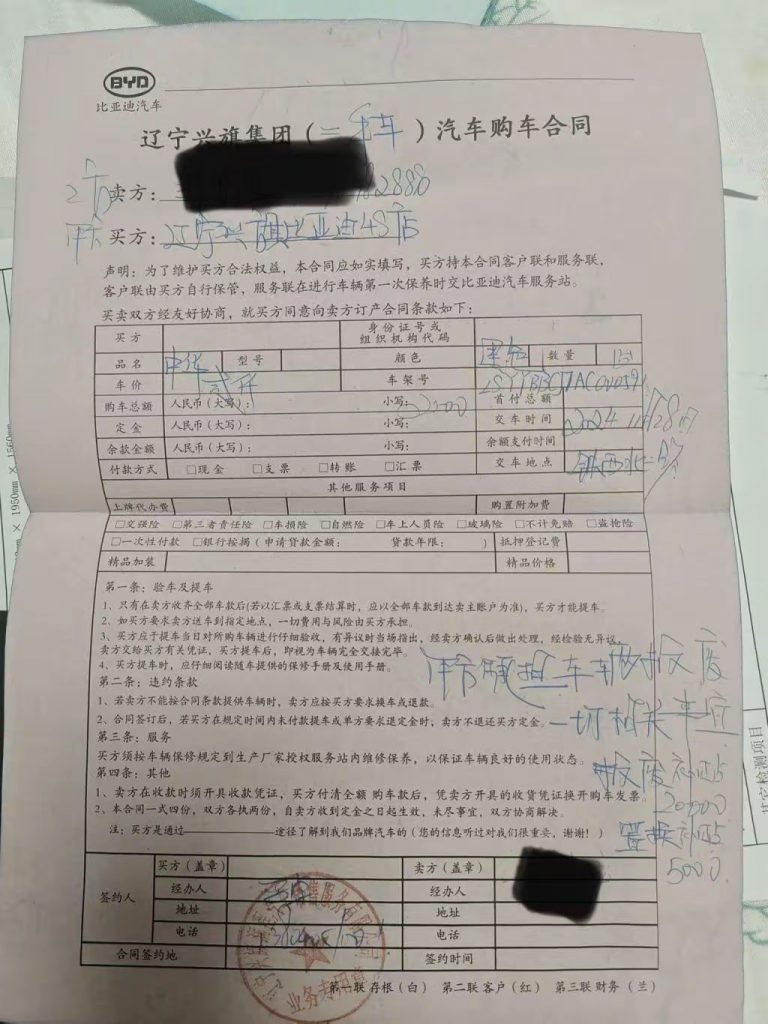 BYD
比亚迪汽车
辽宁兴旗集团（二手车）汽车购车合同
乙方 卖方： 2888
甲方 买方：辽宁兴旗比亚迪4S店
声明：为了维护买方合法权益，本合同应如实填写，买方持本合同客户联和服务联，
客户联由买方自行保管，服务联在进行车辆第一次保养时交比亚迪汽车服务站。
买卖双方经友好协商，就买方同意向卖方订产合同条款如下：
买方 身份证号或组织机构代码
品名 中华 型号 颜色 数量
车价 车架号
购车总额 人民币（大写）： 小写： 首付总额
定金 人民币（大写）： 小写： 交车时间 2024
余款金额 人民币（大写）： 小写： 余额支付时间
付款方式 □现金 □支票 □转账 □汇票 交车地点
其他服务项目
上牌代办费 购置附加费
□交强险 □第三者责任险 □车损险 □自燃险 □车上人员险 □玻璃险 □不计免赔 □盗抢险
□一次性付款 □银行按揭（申请贷款金额： 贷款年限： ） 抵押登记费
精品加装 精品价格
第一条：验车及提车
1、只有在卖方收齐全部车款后(若以汇票或支票结算时，应以全部车款到达卖主账户为准)，买方才能提车。
2、如买方要求卖方送车到指定地点，一切费用与风险由买方承担。
3、买方应于提车当日对所购车辆进行仔细验收，有异议时当场指出，经卖方确认后做出处理，经检验无异议，
卖方交给买方有关凭证，买方提车后，即视为车辆完全交接完毕。
4、买方提车时，应仔细阅读随车提供的保修手册及使用手册。
第二条：违约条款
1、若卖方不能按合同条款提供车辆时，卖方应按买方要求换车或退款。
2、合同签订后，若买方在规定时间内未付款提车或单方要求退定金时，卖方不退还买方定金。
第三条：服务
买方须按车辆保修规定到生产厂家授权服务站内维修保养，以保证车辆良好的使用状态。
第四条：其他
1、卖方在收款时须开具收款凭证，买方付清全额 购车款后，凭卖方开具的收货凭证换开购车发票。
2、本合同一式四份，双方各执两份，自卖方收到定金之日起生效，未尽事宜，双方协商解决。
注：买方是通过————途径了解到我们品牌汽车的（您的信息听过对我们很重要，谢谢！）
报废
一切相关事宜
报废补贴
20000
置换补贴
5000
签约人 买方（盖章） 卖方（盖章）
经办人 经办人
地址 地址
电话 电话
合同签约地 签约时间
业务专用章
第一联存根（白） 第二联客户（红） 第三联财务（兰）
× 1950mm × 1560mm
其它检测项目